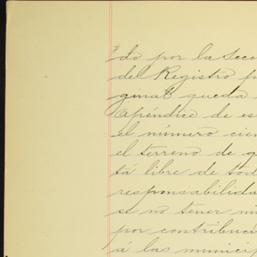 do por la Secc
del Registro p
ginal queda
Apéndice de es
el número cien
el terreno de q
tá libre de tod
responsabilida
se no tener
por contribuci
á las municip